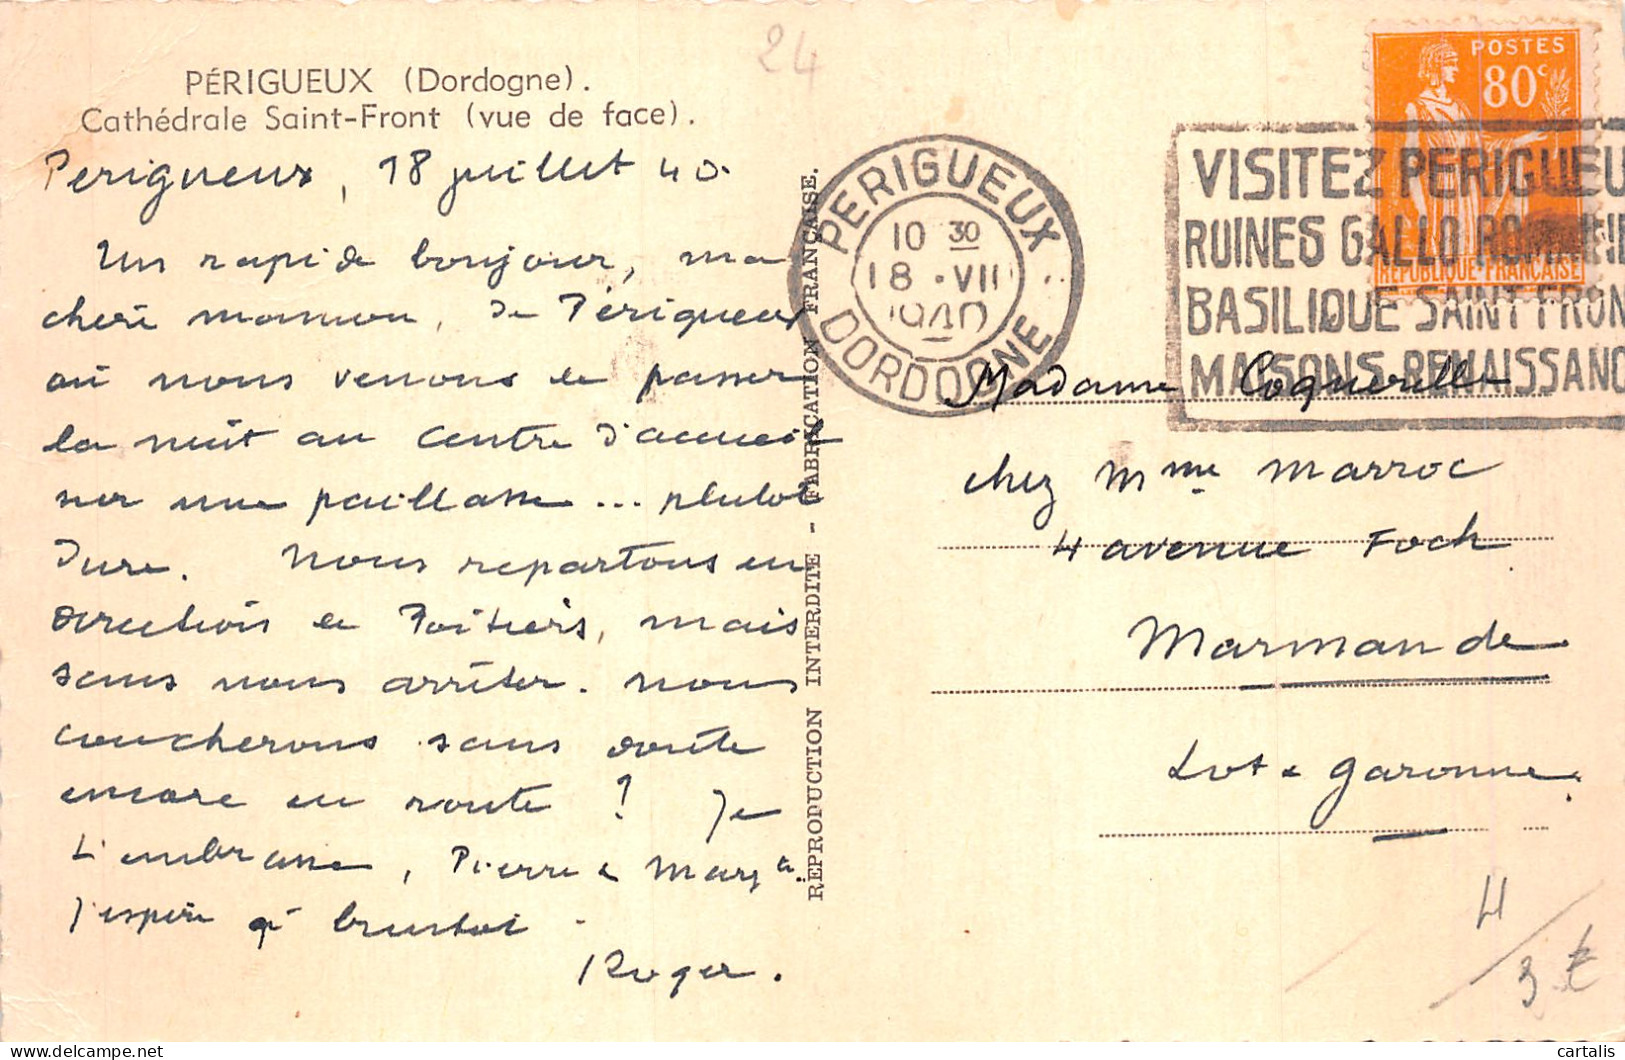 24
PÉRIGUEUX (Dordogne).
Cathédrale Saint-Front (vue de face).
Perigueux, 18 juillet 40.
Un rapide bonjour, ma
chère maman, de Périgueux
où nous venons de passer
la nuit au centre d'accueil
sur une paillasse... plutôt
dure. Nous repartons en
direction de Poitiers, mais
sans nous arrêter. nous
coucherons sans doute
encore en route ? Je
t'embrasse, Pierre & Mary
J'espère bientôt.
Roger.
REPRODUCTION INTERDITE - FABRICATION FRANÇAISE.
PERIGUEUX
10 30
18 ·VII
1940
DORDOGNE
POSTES
80c
REPUBLIQUE-FRANÇAISE
VISITEZ PERIGUEU
RUINES GALLO ROMAINE
BASILIQUE SAINT FRON
MAISONS RENAISSANC
Madame Coquerelle
chez Mme Marroc
4 avenue Foch
Marmande
Lot & Garonne.
3€
cartalis